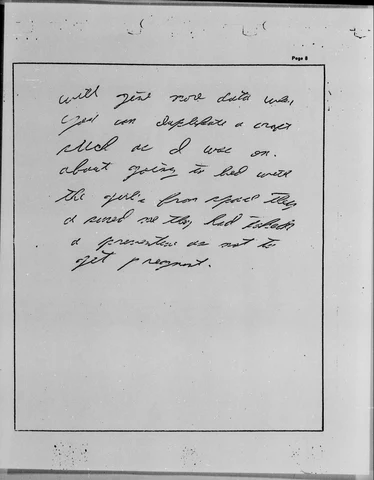 Page 8
will give more data when
you can duplicate a craft
such as I was on.
about going to bed with
the girls from space they
a sured me they had taken
a preventive as not to
get pregnant.